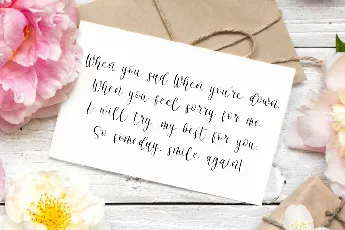 When you sad When you're down
When you feel sorry for me.
I will try my best for you
So someday, smile again!